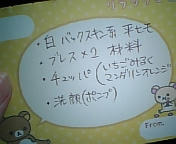 ・白バックスキン系 平ヒモ
・ブレス×2 材料
・チュッパ(いちごみるく
マンダリンオレンジ
・洗顔(ポンプ)
From.